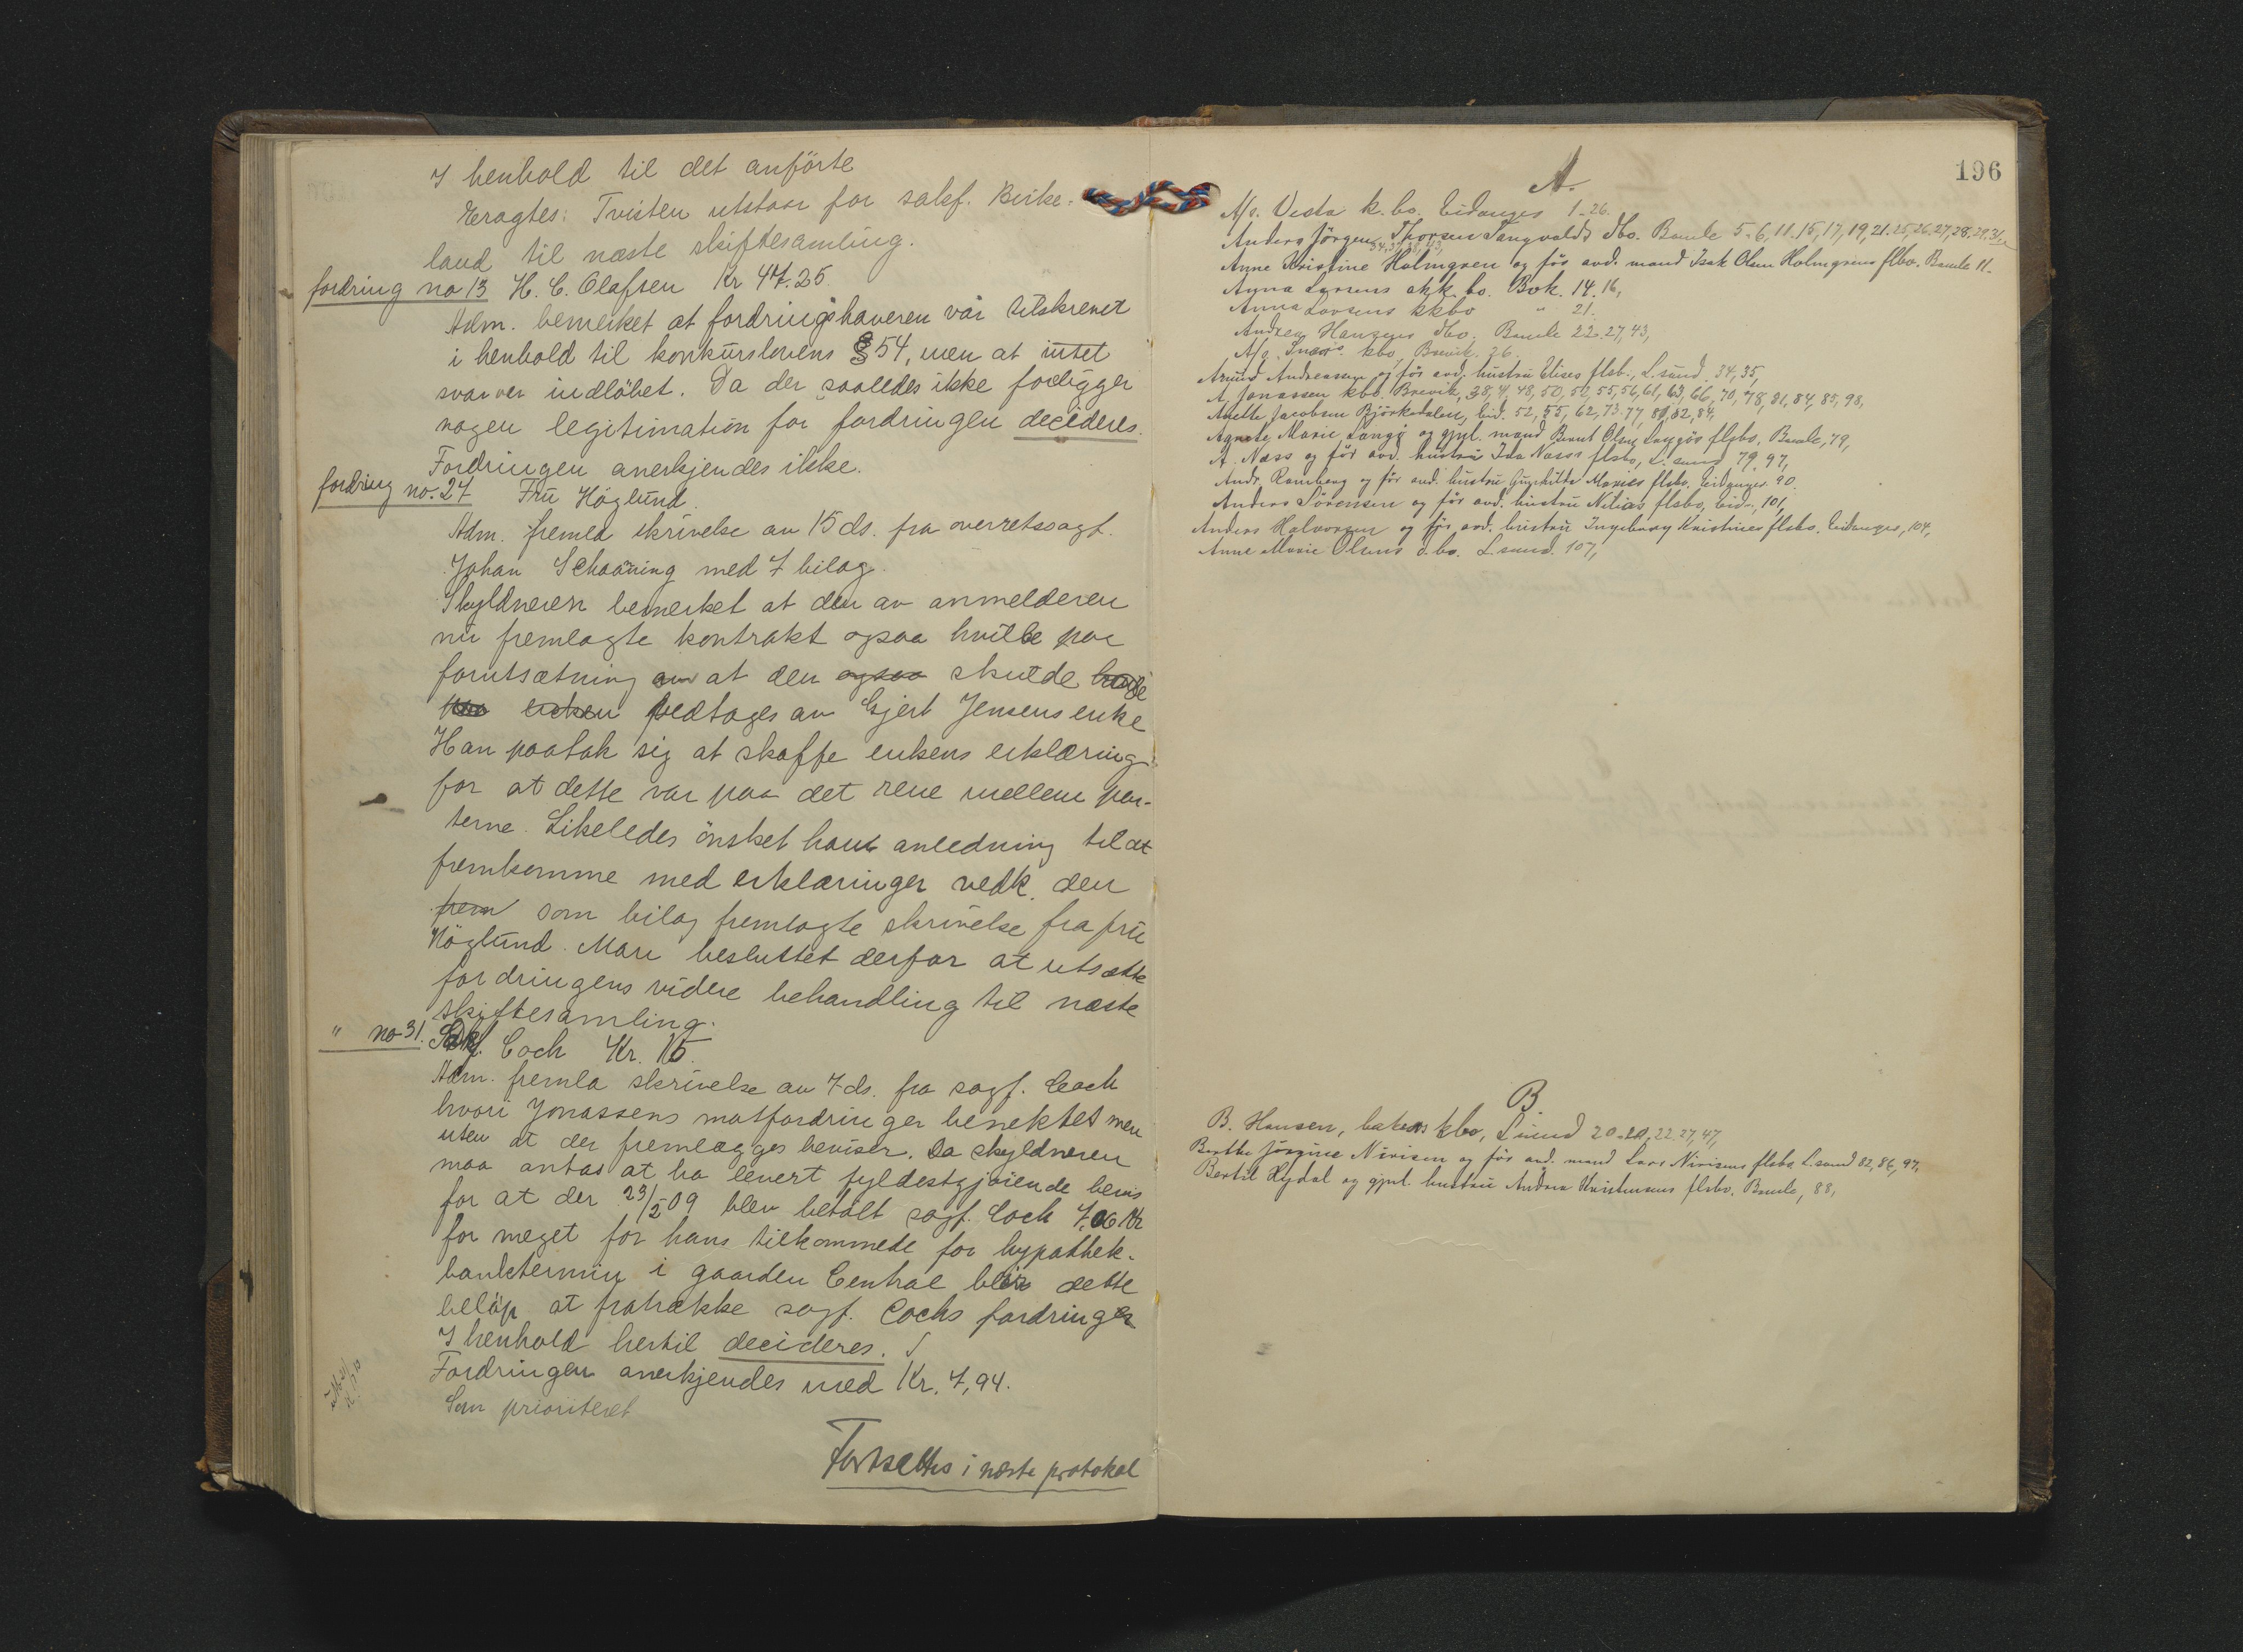 I henhold til det anförte
Eragtes: Tvisten utstaar for sakf. Birke-
land til næste skiftesamling.
fordring no 13 H. C. Olafsen Kr 47.25.
Adm. bemerket at fordringshaveren var tilskrevet
i henhold til konkurslovens § 54, men at intet
svar er indløbet. Da der saaledes ikke foreligger
nogen legitimation for fordringen decideres.
Fordringen anerkjendes ikke.
fordring no. 27 Frü Höglund.
Adm. fremla skrivelse av 15 ds. fra overretssagf.
Johan Schaaning med 7 bilag.
Skyldneren bemerket at den av anmelderen
nu fremlagte kontrakt ogsaa hvilte paa
forutsætning om at den ogsaa skulde
paa enken vedtages av Gjert Jensens enke
Han paatok sig at skaffe enkens erklæring
for at dette var paa det rene mellem par-
terne. Likeledes önsket han anledning til at
fremkomme med erklæringer vedk. den
frem som bilag fremlagte skrivelse fra frü
Höglund. Man besluttet derfor at utsætte
fordringens videre behandling til næste
skiftesamling.
" no 31. Sakf. Coch Kr. 15.
Adm. fremla skrivelse av 7 ds. fra sagf. Coch
hvori Jonassens motfordringer benektet men
uten at der fremlægges beviser. Da skyldneren
maa antas at ha levert fyldestgjöiende bevis
for at der 23/5 09 blev betalt sagf. Coch 7.06 Kr
for meget for hans tilkommede for hypothek-
banktermin i gaarden Central blir dette
belöp at fratrække sagf. Cochs fordringer
I henhold hertil decideres.
Fordringen anerkjendes med Kr. 7,94.
Som prioriteret
Fortsættes i næste protokol
196
A.
A/s. Vesta k. bo. Eidanger 1-26.
Anders Jörgen Thorsen Tangvalds dbo. Bamle 5-6, 11. 15, 17, 19, 21. 25, 26. 27, 28. 29. 31,
34. 37, 38, 43,
Anne Kristine Holmgren og för avd. mand Isak Olsen Holmgrens flbo. Bamle 11.
Anna Larsens akk. bo. Brvk. 14. 16,
Anna Larsens kkbo " 21.
Andrea Hansens dbo. Bamle 22. 27, 43,
A/s kbo, Brevik. 26.
Amünd Andreassen og för avd. hustru Elises flsb., L.sund. 34, 35,
A. Jonassen kbo. Brevik, 38, 41, 48, 50, 52, 55, 56, 61, 63, 66, 70, 78, 81, 84, 85, 98,
Anette Jacobsen Björkedalen, Eid. 52, 55, 62, 73. 77, 81, 82, 84,
Agnete Marie Langö og gjnl. mand Bernt Olsen Langös flsbo. Bamle, 79,
A. Næss og för avd. hustru Ida Næss flsbo, L.sund 79. 97,
Andr. Ramberg og för avd. hustru Gunhilde Maries flsbo. Eidanger. 90.
Anders Sörensen og för avd. hustru Nilias flsbo, Eid., 101,
Anders Halvorsen og för avd. hustru Ingeborg Kristines flsbo. Eidanger, 104,
Anne Marie Olsens d.bo. L.sund. 107,
B.
B. Hansen, bakers kbo, L.sund 20-21, 22. 27, 47,
Berthe Jörgine Nirisen og för avd. mand Lars Nirisens flsbo L.sund 82, 86, 97,
Bertil Rydal og gjnl. hustru Andrea Kristensens flsbo. Bamle, 88,